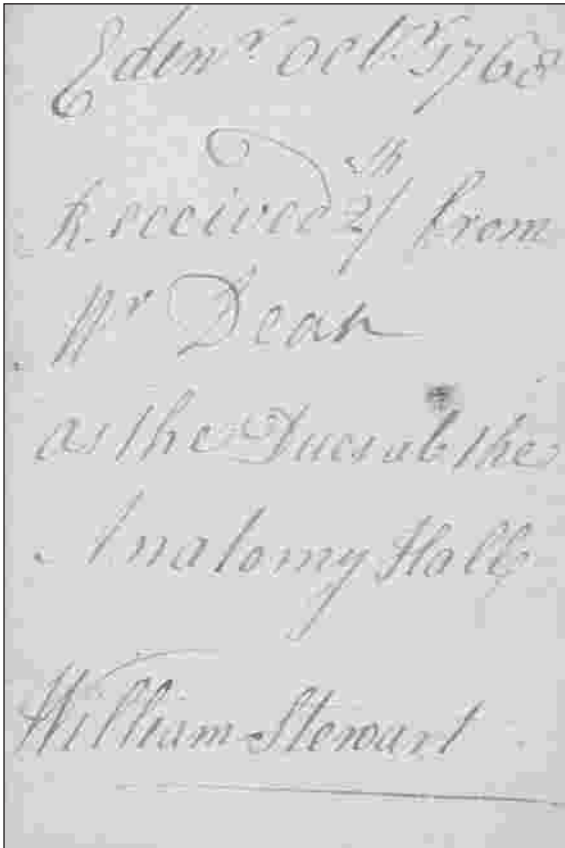 Edinr Octr 1768
Received 2/ from
Mr Dean
as the Dues at the
Anatomy Hall
William Stewart